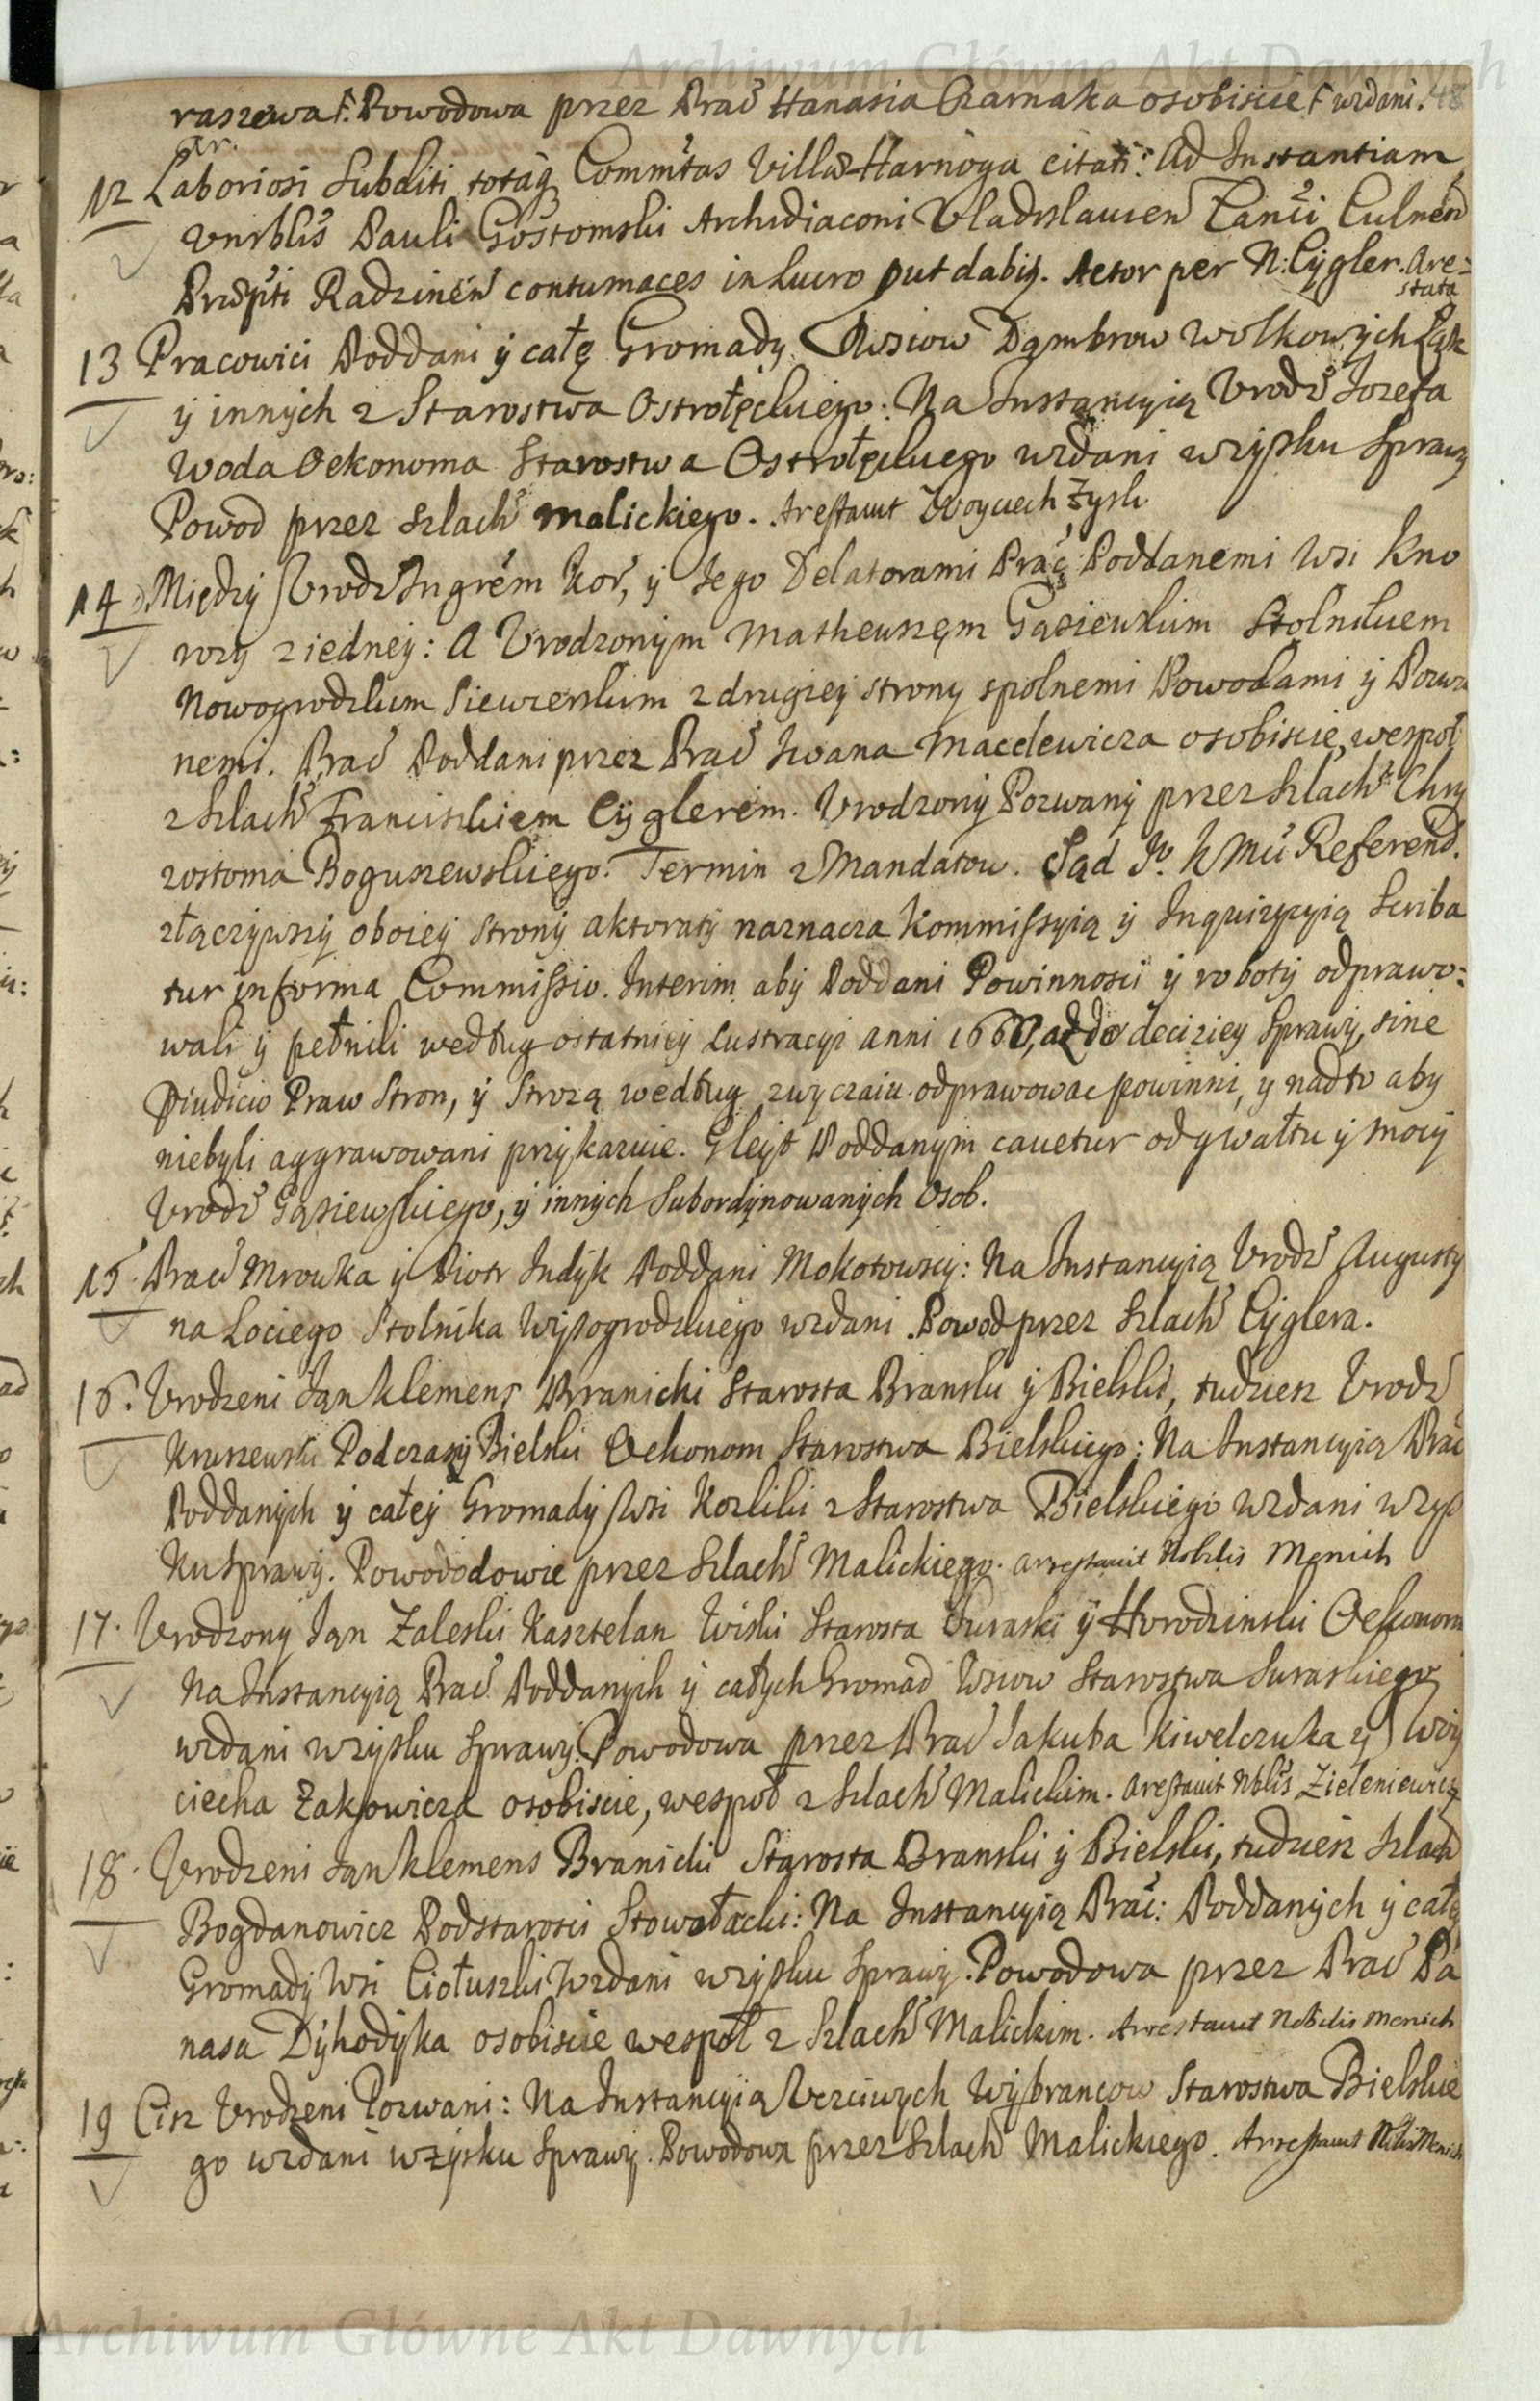 Archiwum Główne Akt Dawnych
raszewa F. Powodowa przez Prac Hanasia Czarnaka osobiscie F wzdani. 48
ar.
12 Laboriosi Subditi totaq Commtas Villæ Harnoga citati: Ad Instantiam
vnrblis Pauli Gostomski Archidiaconi Vladislavien Canci Culmen
Præpti Radzinen contumaces in lucro put dabit. Actor per N: Cygler. Are=
stata
13 Pracowici Poddani ÿ całę Gromady Wsiow Dąmbrow wolkowych Łąk
ÿ innÿch z Starostwa Ostrołęckiego: Na Instancyią Vrodz Jozefa
Woda Oekonoma Starostwa Ostrołęckiego wzdani wzysku Sprawy
Powod przez szlach Malickiego. Arestavit Woyciech Zysk
14 Między Vrodz Ingrem Kor, ÿ Jego Delatorami Prac Poddanemi Wsi Kno
rozy z iedneÿ: A Vrodzonÿm Matheuszęm Gąsiewskim Stolnikiem
Nowogrodzkim Siewierskim z drugieÿ stronÿ spolnemi Powodami ÿ Pozwa
nemi. Prac Poddani przez Prac Iwana Macelewicza osobiscie, wespoł
z Szlach Franciszkiem Cÿglerem. Vrodzonÿ Pozwanÿ przez Szlach Chry
zostoma Boguszewskiego. Termin z Mandatow. Sąd J. K Mci Referend.
złączÿwszÿ oboieÿ Stronÿ aktoratÿ naznacza Kommissyią ÿ Inquizycyią Scriba
tur in forma Commissio. Interim abÿ Poddani Powinnosci ÿ robotÿ odprawo=
wali ÿ pełnili według ostatnieÿ Lustracyi anni 1660, aż do deciziey Sprawÿ, sine
Piudicio Praw Stron, ÿ Strożą według zwyczaiu odprawowac powinni, y nadto aby
niebyli aggrawowani przÿkazuie. Gleyt Poddanÿm cavetur od gwałtu ÿ mocÿ
Vrodz Gąsiewskiego, ÿ innÿch Subordÿnowanÿch Osob.
15. Prac Mrowka ÿ Piotr Indÿk Poddani Mokotowscÿ: Na Instancyią Vrodz Augusty
na Lociego Stolnika Wyszogrodzkiego wzdani. Powod przez Szlach Cÿglera.
16. Vrodzeni Jąn Klemens Branicki Starosta Branski ÿ Bielski, tudziesz Vrodz
Kruszewski Podczaszÿ Bielski Oekonom Starostwa Bielskiego: Na Instancyią Prac
Poddanÿch ÿ całeÿ Gromadÿ Wsi Kozliki z Starostwa Bielskiego wzdani wzys
ku Sprawÿ. Powododowie przez Szlach Malickiego. arrestavit Nobilis Menich
17. Vrodzonÿ Jąn Zaleski Kasztelan Wiski Starosta Suraski ÿ Horodzinski Oekonom
Na Instancyią Prac Poddanÿch ÿ całÿch Gromad Wsiow Starostwa Suraskiego
wzdani wzysku Sprawÿ. Powodowa przez Prac Jakuba Kiwelczuka y Woÿ
ciecha Zakowicza osobiscie, wespoł z Szlach Malickim. arestavit Nblis Zieleniewicz
18. Vrodzeni Jąn Klemens Branicki Starosta Branski ÿ Bielski, tudziesz Szlach
Bogdanowicz Podstarosci Stowołacki: Na Instancyią Prac: Poddanÿch ÿ całę
Gromadÿ Wsi Ciołuszki wzdani wzysku Sprawÿ. Powodowa przez Prac Pa
nasa Dÿhodÿka osobiscie wespoł z Szlach Malickim. Arrestavit Nobilis Menich
19 Cisz Vrodzeni Pozwani: Na Instancyią Vczciwych Wÿbrancow Starostwa Bielskie
go wzdani wzysku Sprawÿ. Powodowa przez Szlach Malickiego. Arrestavit Nblis Menich
Archiwum Główne Akt Dawnych